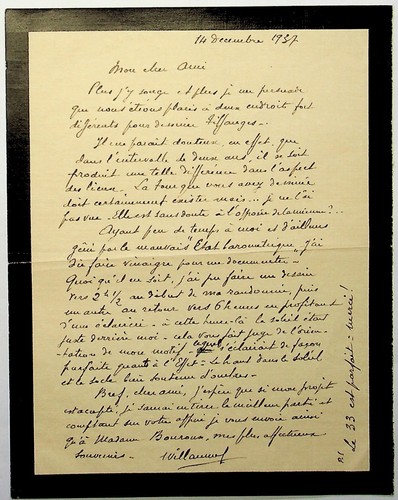 14 décembre 1937
Mon cher Ami
Plus j'y songe et plus je me persuade
que nous étions placés à deux endroits fort
différents pour dessiner Tiffauges -
Il me paraît douteux, en effet, que
dans l'intervalle de deux ans, il se soit
produit une telle différence dans l'aspect
des lieux. La tour que vous avez dessinée
doit certainement exister mais... je ne l'ai
pas vue. Elle est sans doute à l'opposé
Ayant peu de temps à moi et d'ailleurs
gêné par le mauvais "Etat barométrique", j'ai
dû faire vinaigre pour me documenter -
Quoi qu'il en soit, j'ai pu faire un dessin
vers 2h 1/2 au début de ma randonnée, puis
un autre au retour vers 6 heures en profitant
d'une éclaircie - à cette heure-là le soleil était
juste derrière moi - cela vous fait juge de l'orien-
tation de mon motif - lequel s'éclairait de façon
parfaite quant à l'Effet - Le haut dans le soleil
et le socle bien soutenu d'ombres -
Bref, cher ami, j'espère que si mon projet
est accepté, je saurai en tirer le meilleur parti et
comptant sur votre appui je vous envoie ainsi
qu'à Madame mes plus affectueux
souvenirs -
P.S. Le 33 est parfait - merci!